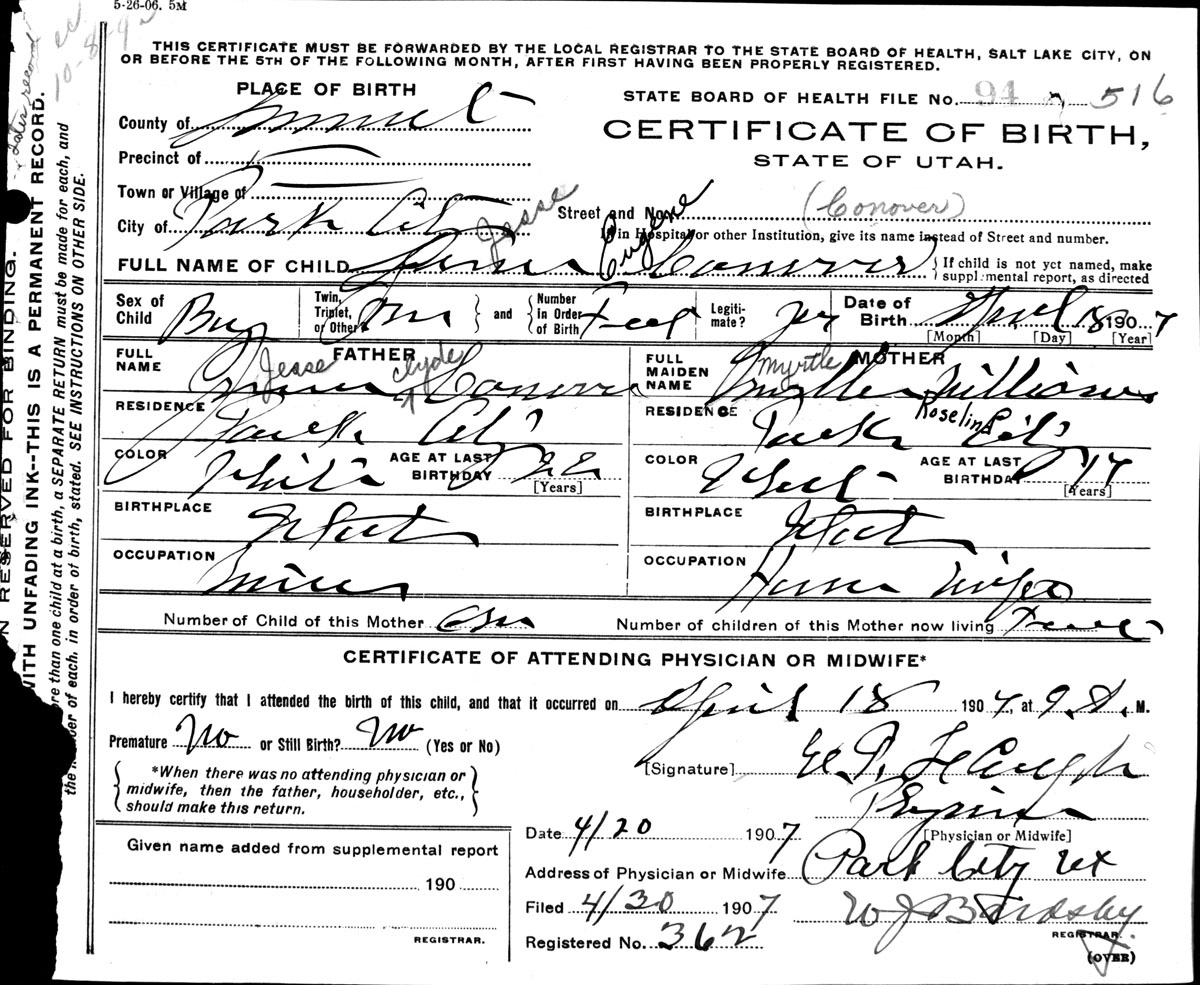 5-26-06. 5M
THIS CERTIFICATE MUST BE FORWARDED BY THE LOCAL REGISTRAR TO THE STATE BOARD OF HEALTH, SALT LAKE CITY, ON
OR BEFORE THE 5TH OF THE FOLLOWING MONTH, AFTER FIRST HAVING BEEN PROPERLY REGISTERED.
PLACE OF BIRTH
STATE BOARD OF HEALTH FILE No. 94 516
County of Summit
CERTIFICATE OF BIRTH,
Precinct of
STATE OF UTAH.
Town or Village of
Jesse Street and No. Eugene (Conover)
City of Park City
If in Hospital or other Institution, give its name instead of Street and number.
FULL NAME OF CHILD Conover { If child is not yet named, make
supplemental report, as directed
Sex of Child Boy Twin, Triplet, or Other } and { Number in Order of Birth Legitimate? Yes Date of Birth April 18 1907
[Month] [Day] [Year]
FATHER
FULL NAME Jesse Clyde Conover
MOTHER
FULL MAIDEN NAME Myrtle Williams
Roselind
RESIDENCE Park City
RESIDENCE Park City
COLOR White AGE AT LAST BIRTHDAY 22 [Years]
COLOR White AGE AT LAST BIRTHDAY 17 [Years]
BIRTHPLACE Utah
BIRTHPLACE Utah
OCCUPATION Miner
OCCUPATION House Wife
Number of Child of this Mother One Number of children of this Mother now living
CERTIFICATE OF ATTENDING PHYSICIAN OR MIDWIFE*
I hereby certify that I attended the birth of this child, and that it occurred on April 18 1907, at 9. M.
Premature No or Still Birth? No (Yes or No)
[Signature]
*When there was no attending physician or
midwife, then the father, householder, etc.,
should make this return.
[Physician or Midwife]
Date 4/20 1907
Given name added from supplemental report
Address of Physician or Midwife Park City Ut
190
Filed 4/30 1907 W J Bardsby
REGISTRAR.
REGISTRAR.
Registered No. 362
(OVER)
N RESERVED FOR BINDING.
WITH UNFADING INK--THIS IS A PERMANENT RECORD.
ore than one child at a birth, a SEPARATE RETURN must be made for each, and
the number of each, in order of birth, stated. SEE INSTRUCTIONS ON OTHER SIDE.